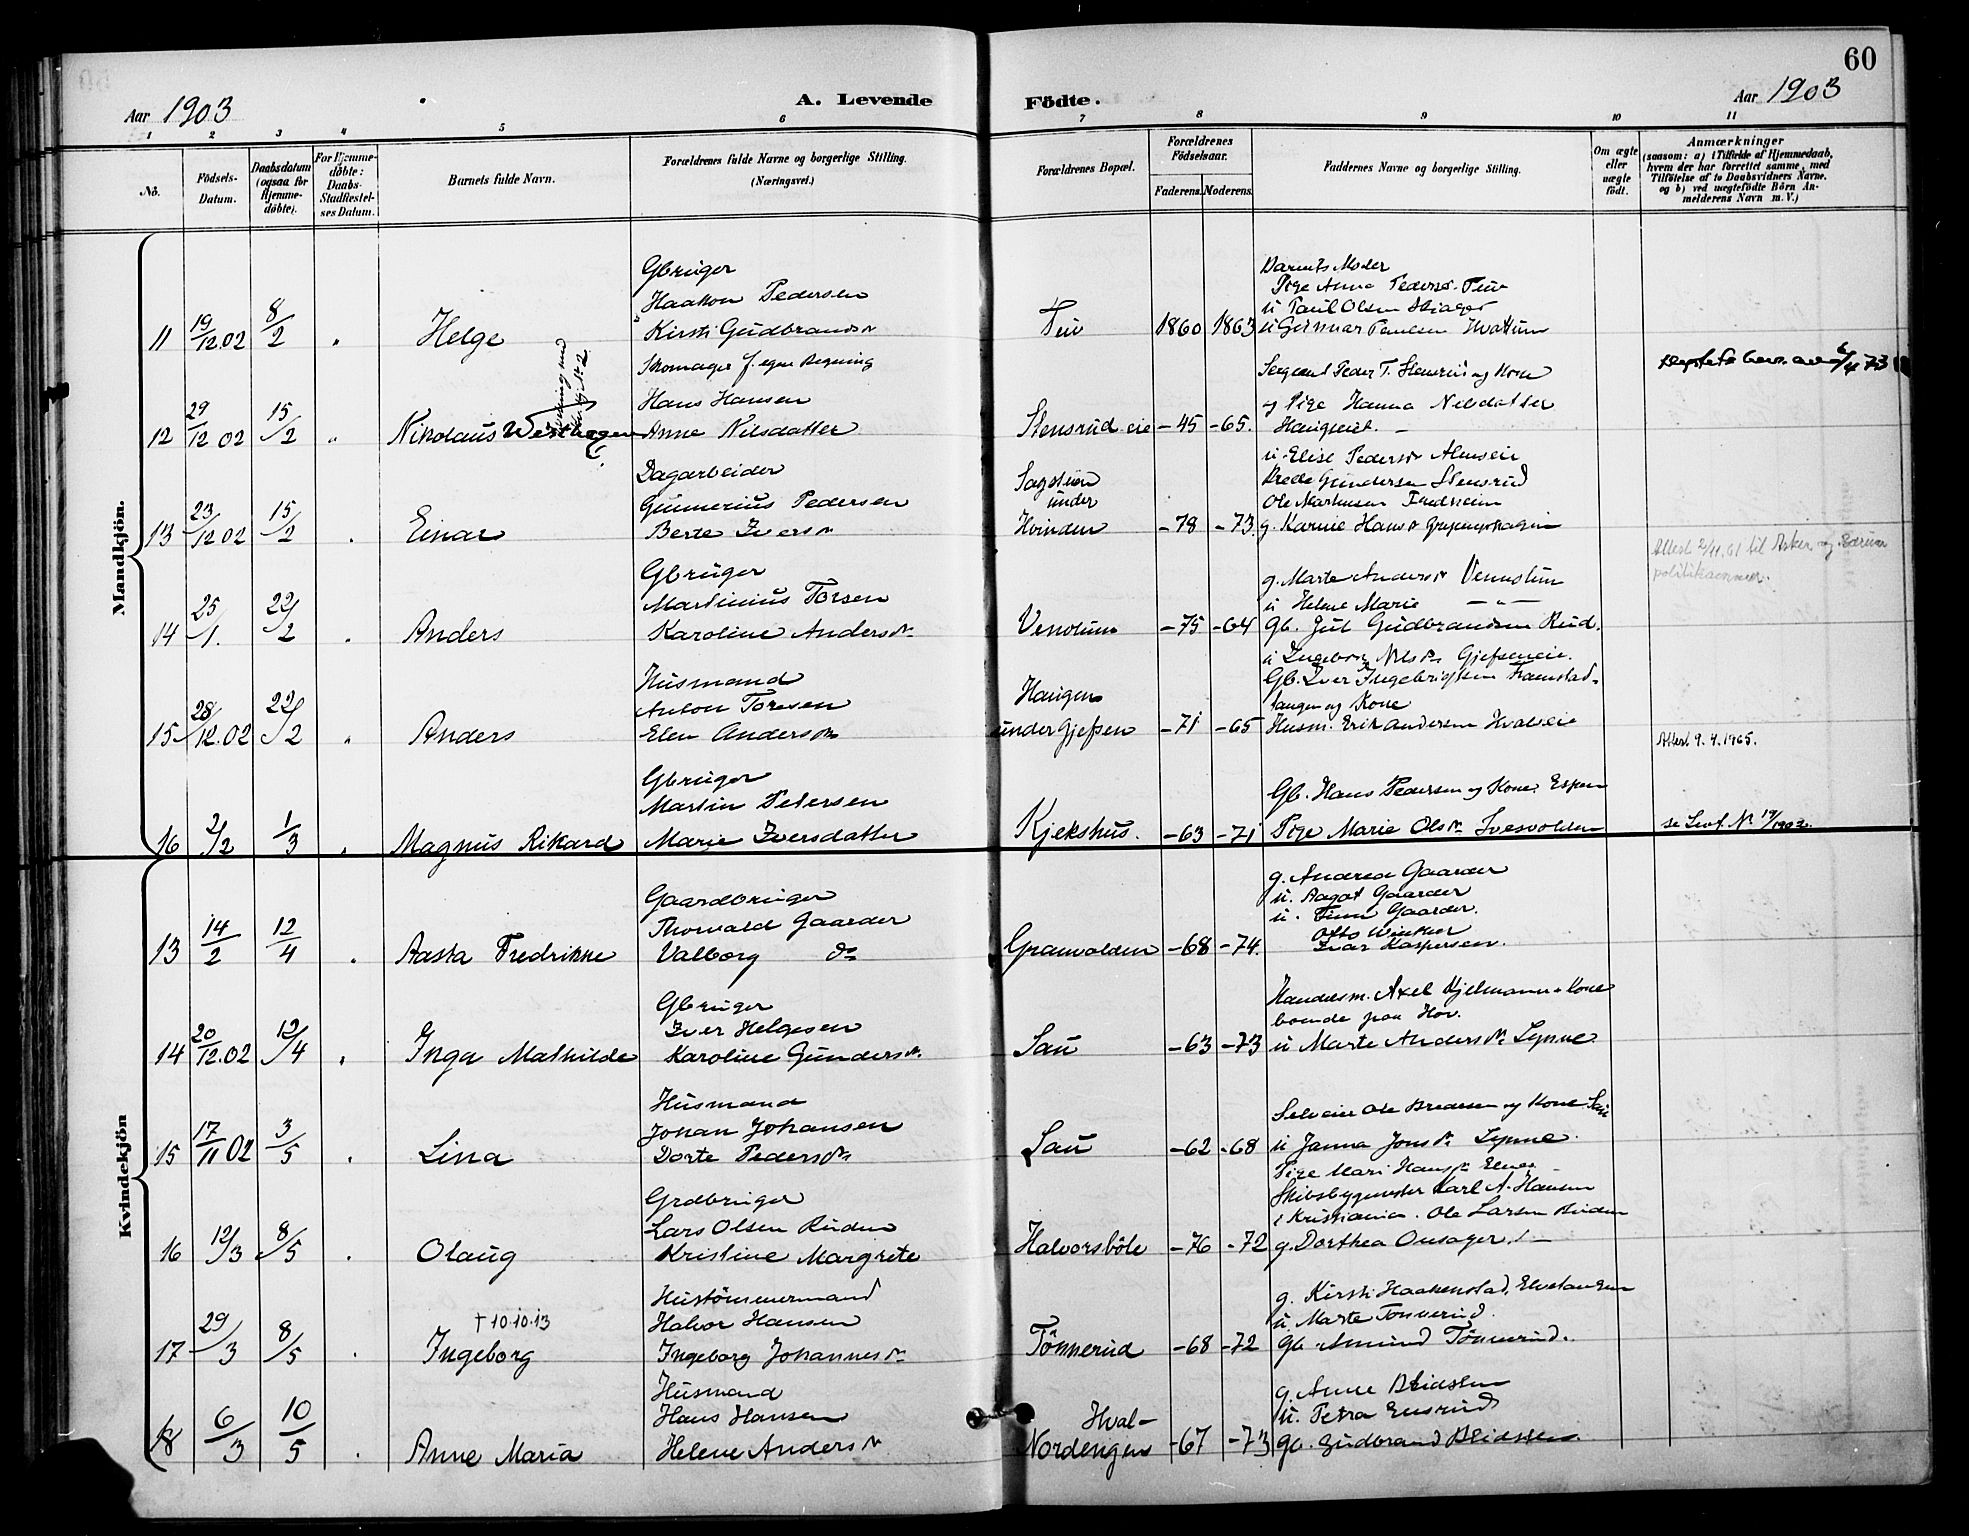 60
Aar 1903
A. Levende
Födte.
Aar 1903
1 2 3 4 5 6 7 8 9 10 11
No.
Födsels-Datum.
Daabsdatum (ogsaa for Hjemme-döbte).
For Hjemme-döbte: Daabs-Stadfæstel-ses Datum.
Barnets fulde Navn.
Forældrenes fulde Navne og borgerlige Stilling. (Næringsvei.)
Forældrenes Bopæl.
Forældrenes Födselsaar.
Faderens. Moderens.
Faddernes Navne og borgerlige Stilling.
Om ægte eller uægte födt.
Anmærkninger
(saasom: a) i Tilfælde af Hjemmedaab, hvem der har forrettet samme, med Tilföielse af to Daabsvidners Navne, og b) ved uægtefödte Börn An-melderens Navn m. V.)
Mandkjön.
Gbruger
Haakon Pedersen
11 19/12.02 8/2 " Helge Kirsti Gudbrandsdr 1860 1863
Barnets Moder
Pige Anna Pedersdr
u Paul Olsen
u Gunnar Paulsen Hvattum
Skomager f. egen Regning
Hans Hansen
12 29/12 02 15/2 " Nikolaus Westhagen Anne Nilsdatter Stensrud eie -45 -65.
Sergeant Peder T. og Kone
og Pige Hanna Nilsdatter
Dagarbeider
Gunnerius Pedersen
13 23/12 02 15/2 . Einar Berte Iversdr
under Hvinden -78 -73.
u. Elise Pedersdr
Brede Gundersen Stensrud
Ole Martinsen Fredheim
g. Karine Hansdr
Attest 2/11.61 til Asker og Bærum politikammer.
Gbruger
Martinius Torsen
14 25/1. 22/2 . Anders Karoline Andersdr. Venolum -75 -64
g. Marte Andersdr
u Helene Marie — " —
gb. Jul Gudbrandsen Rud.
Husmand
Anton Toresen
15 28/12.02 22/2 " Anders Elen Andersdr
Haugen
under Gjefsen -71 -65
u Ingebor Nilsdr Gjefseneie.
Gb. Iver Ingebrigtsen
tangen og Kone
Husm. Erik Andersen Hvalseie
Attest 9.4.1965.
Gbruger
Martin Petersen
16 2/2 1/3 . Magnus Rikard Marie Iversdatter Kjekshus. -63 -71
Gb. Hans Pedersen og Kone. Espen
Pige Marie Olsdr
Kvindekjön
Gaardbruger
Thorvald Gaarder
13 14/2 12/4 . Aasta Fredrikke Valborg do Granvolden -68 -74.
g. Andrea Gaarder
u. Aagot Gaarder
u. Finn Gaarder.
Otto Winther
Ivar Kaspersen.
Gbruger
Iver Helgesen
14 20/12.02 12/4 . Inga Mathilde Karoline Gundersdr. Sau -63 -73
Handelsm. Axel Hjelmann + Kone
boende paa Hov.
u Marte Andersdr Lynne
Husmand
Johan Johansen
15 17/11 02 3/5 . Lina Dorte Pedersdr Sau -62 -68
Selveier Ole Bredesen og Kone Sau
u Janna Jonsdr Lynne.
Grdbruger
Lars Olsen Ruden
16 12/3 8/5 . Olaug Kristine Margrete Halvorsböle -76 -72
Pige Mari Hansdr
Skibsbygmester Karl A. Hansen
i Kristiania. Ole Larsen Ruden
g. Dorthea Onsager
Hustömmermand
† 10.10.13 Halvor Hansen
17 29/3 8/5 . Ingeborg Ingeborg Johannesdr Tönnerud -68 -72
g. Kirsti Haakenstad,
u Marte Tönnerud.
gb. Amund Tönnerud.
Husmand
Hans Hansen
18 6/3 10/5 . Anne Maria Helene Andersdr
Hval-
Nordengen -67 -73
g. Anne
u. Petra Ensrud
gb. Gudbrand